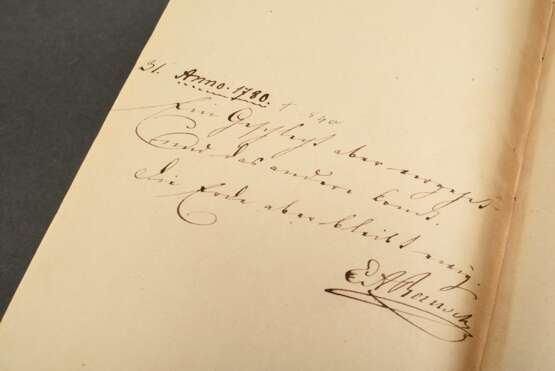 Anno. 1780.
Ein Geschlecht aber vergehet
und das andere komt
die Erde aber bleibt ewig.